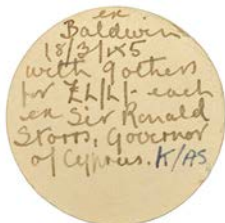 ex
Baldwin
18/3/1X5
with 9 others
for £1/1/- each
ex Sir Ronald
Storrs, Governor
of Cyprus. K/AS